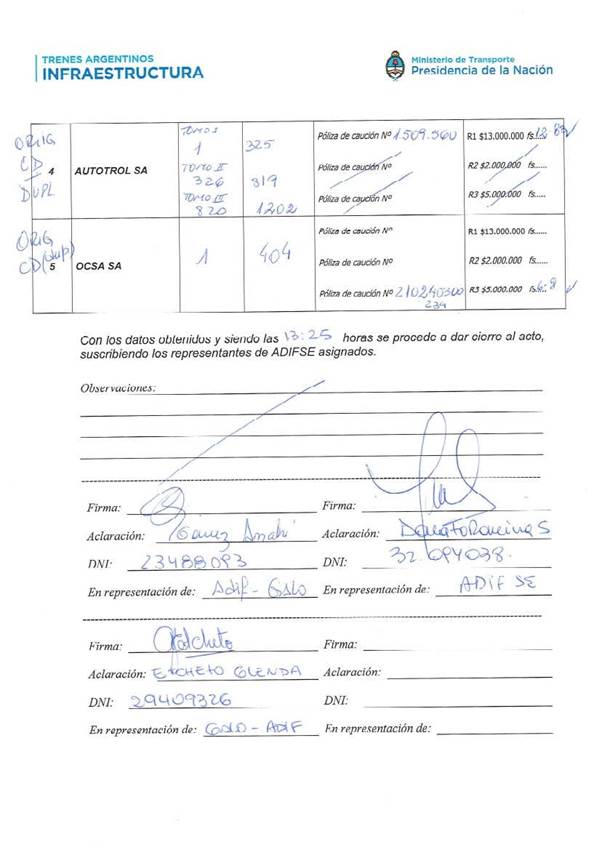 TRENES ARGENTINOS
INFRAESTRUCTURA
Ministerio de Transporte
Presidencia de la Nación
ORIG
CD
DUPL
4 AUTOTROL SA
TOMO I
1 325
TOMO II
326 819
TOMO III
820 1202
Póliza de caución Nº 1.509.560 R1 $13.000.000 fs.
Póliza de caución Nº R2 $2.000.000 fs......
Póliza de caución Nº R3 $5.000.000 fs......
ORIG
CD (dup)
5 OCSA SA 1 404
Póliza de caución Nº R1 $13.000.000 fs.....
Póliza de caución Nº R2 $2.000.000 fs......
Póliza de caución Nº 210240300 R3 $5.000.000 fs. 6-8
234
Con los datos obtenidos y siendo las 13:25 horas se procede a dar cierro al acto,
suscribiendo los representantes de ADIFSE asignados.
Observaciones:
Firma: Firma:
Aclaración: Gomez Anahi Aclaración:
DNI: 23488093 DNI: 32.694038.
En representación de: Adif-GSLO En representación de: ADIF SE
Firma: Etcheto Firma:
Aclaración: ETCHETO GLENDA Aclaración:
DNI: 29409326 DNI:
En representación de: GSLO-ADIF En representación de: